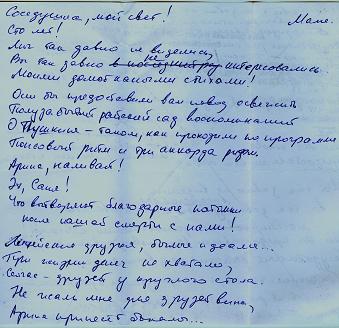 Соседушка, мой свет! Маме.
Сто лет!
Мы так давно не виделись,
Вы так давно не интересовались
Моими домотканными стихами!
Они бы предоставили вам повод освежить
Полузабытый райский сад воспоминаний
О Пушкине – таком, как проходили по программе
Поисовый ритм и три аккорда рифм.
Арина, наливай!
Эх, Саня!
Что вытворяют благодарные потомки
после нашей смерти с нами!
Лицейские друзья, былые идеалы...
При жизни денег не хватало,
Сейчас – друзей у круглого стола.
Не жаль мне для друзей вина,
Арина принесёт бокалы...